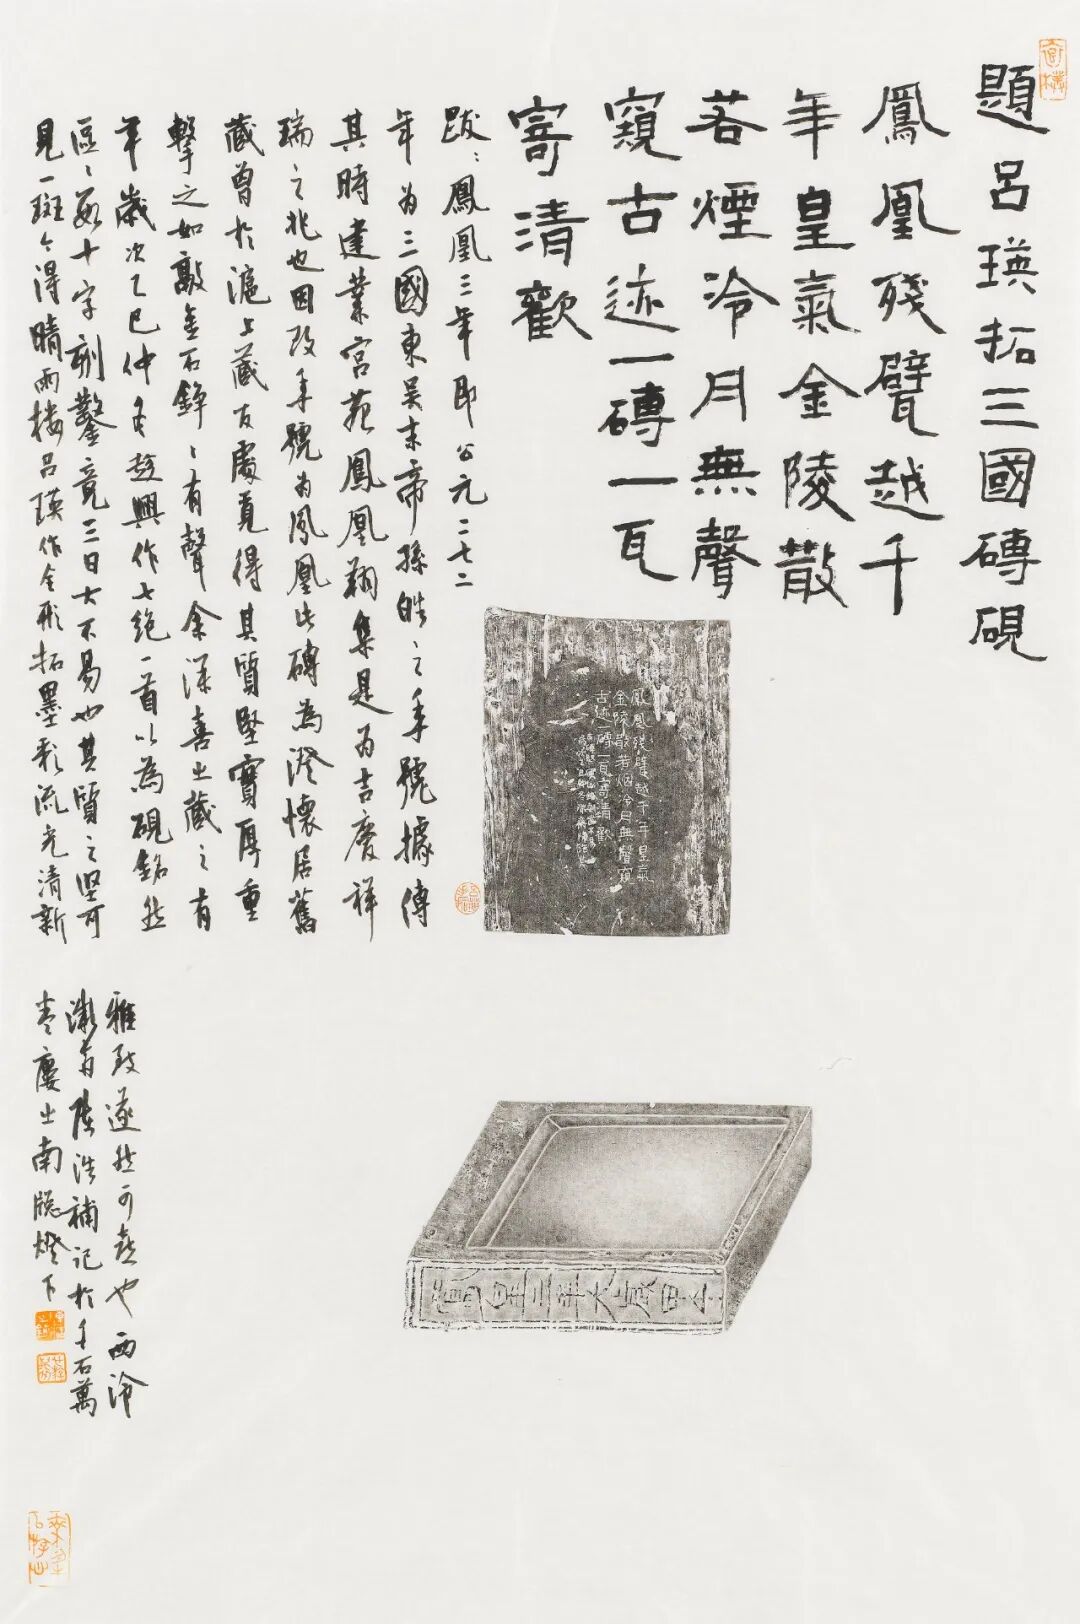 題呂瑛拓三國磚硯
鳳凰殘甓越千
年皇氣金陵散
若煙冷月無聲
窺古迹一磚一瓦
寄清歡
跋：鳳凰三年即公元二七二
年为三國東吴末帝孫皓之年號據傳
其時建業宮苑鳳凰翔集是为吉慶祥
瑞之兆也因改年號为鳳凰此磚為澄懷居舊
藏曾於滬上藏友處覓得其質堅實厚重
擊之如敲金石鏗鏗有聲余深喜之藏之有
年歲次乙巳仲冬趁興作七绝一首以為硯銘然
區區數十字刻鑿竟三日大不易也其質之坚可
見一斑今得晴雨樓呂瑛作全形拓墨彩流光清新
雅致遂然可喜也西泠
漱石陸浩補記於千石萬
壽廔之南牕燈下
鳳凰殘甓越千年皇氣
金陵散若烟冷月無聲窺
古迹一磚一瓦寄清歡
鳳皇三年大歲甲午